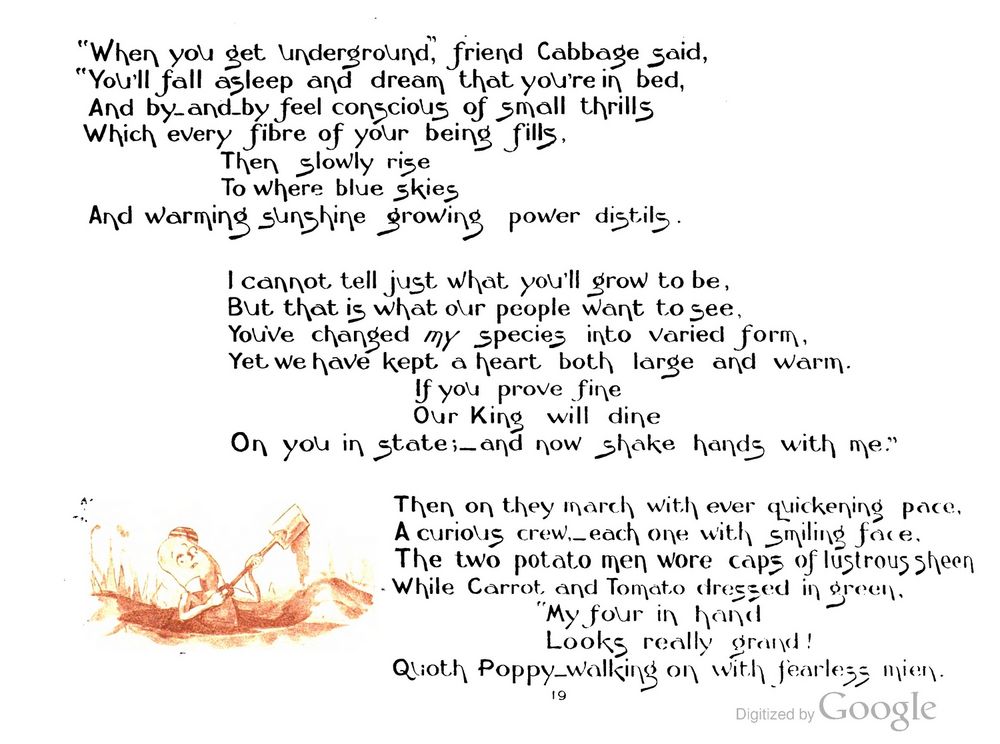 "When you get underground," friend Cabbage said,
"You'll fall asleep and dream that you're in bed,
And by-and-by feel conscious of small thrills
Which every fibre of your being fills,
Then slowly rise
To where blue skies
And warming sunshine growing power distils.
I cannot tell just what you'll grow to be,
But that is what our people want to see,
You've changed my species into varied form,
Yet we have kept a heart both large and warm.
If you prove fine
Our King will dine
On you in state;—and now shake hands with me."
Then on they march with ever quickening pace,
A curious crew,—each one with smiling face,
The two potato men wore caps of lustrous sheen
While Carrot and Tomato dressed in green,
"My four in hand
Looks really grand!
Quoth Poppy—walking on with fearless mien.
19
Digitized by Google